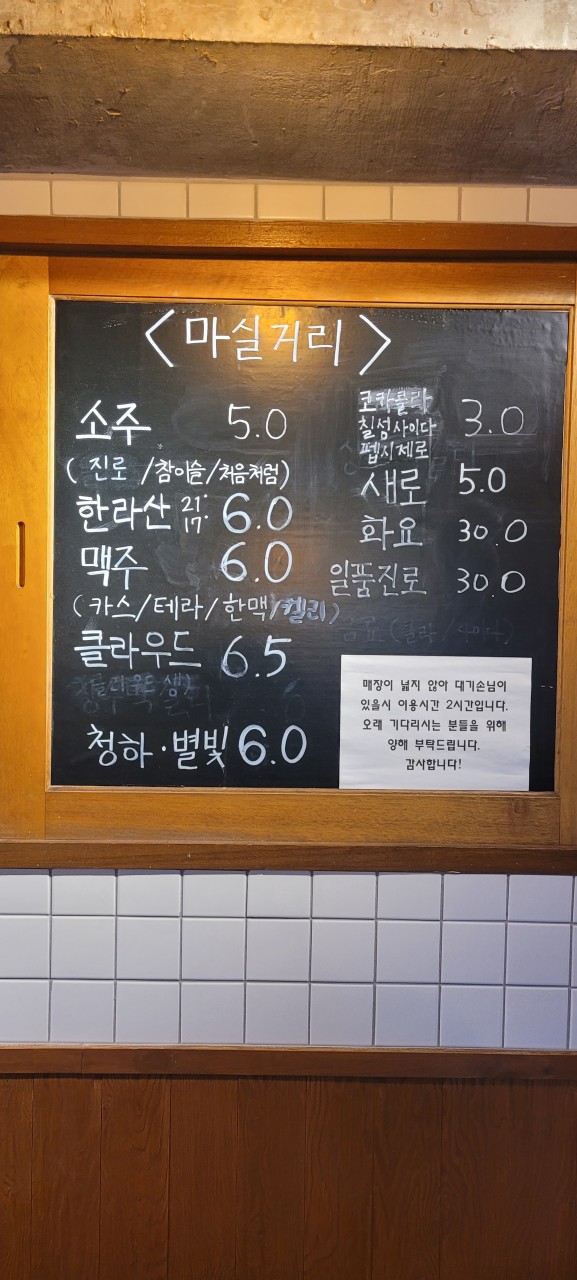 <마실거리>
소주 5.0
(진로/참이슬/처음처럼)
한라산 21. 17. 6.0
맥주 6.0
(카스/테라/한맥/켈리)
클라우드 6.5
청하·별빛 6.0
코카콜라
칠성사이다 3.0
펩시제로
새로 5.0
화요 30.0
일품진로 30.0
매장이 넓지 않아 대기손님이
있을시 이용시간 2시간입니다.
오래 기다리시는 분들을 위해
양해 부탁드립니다.
감사합니다!